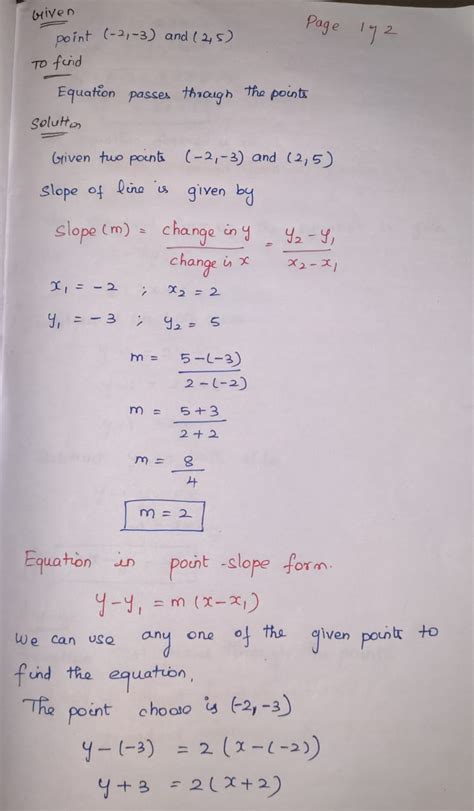 Given
Page 1 of 2
point (-2,-3) and (2,5)
To find
Equation passes through the points
Solution
Given two points (-2,-3) and (2,5)
Slope of line is given by
Slope (m) = change in y / change in x = y₂-y₁ / x₂-x₁
x₁ = -2 ; x₂ = 2
y₁ = -3 ; y₂ = 5
m = 5-(-3) / 2-(-2)
m = 5+3 / 2+2
m = 8 / 4
m = 2
Equation in point-slope form.
y-y₁ = m(x-x₁)
we can use any one of the given points to
find the equation,
The point choose is (-2,-3)
y-(-3) = 2(x-(-2))
y+3 = 2(x+2)